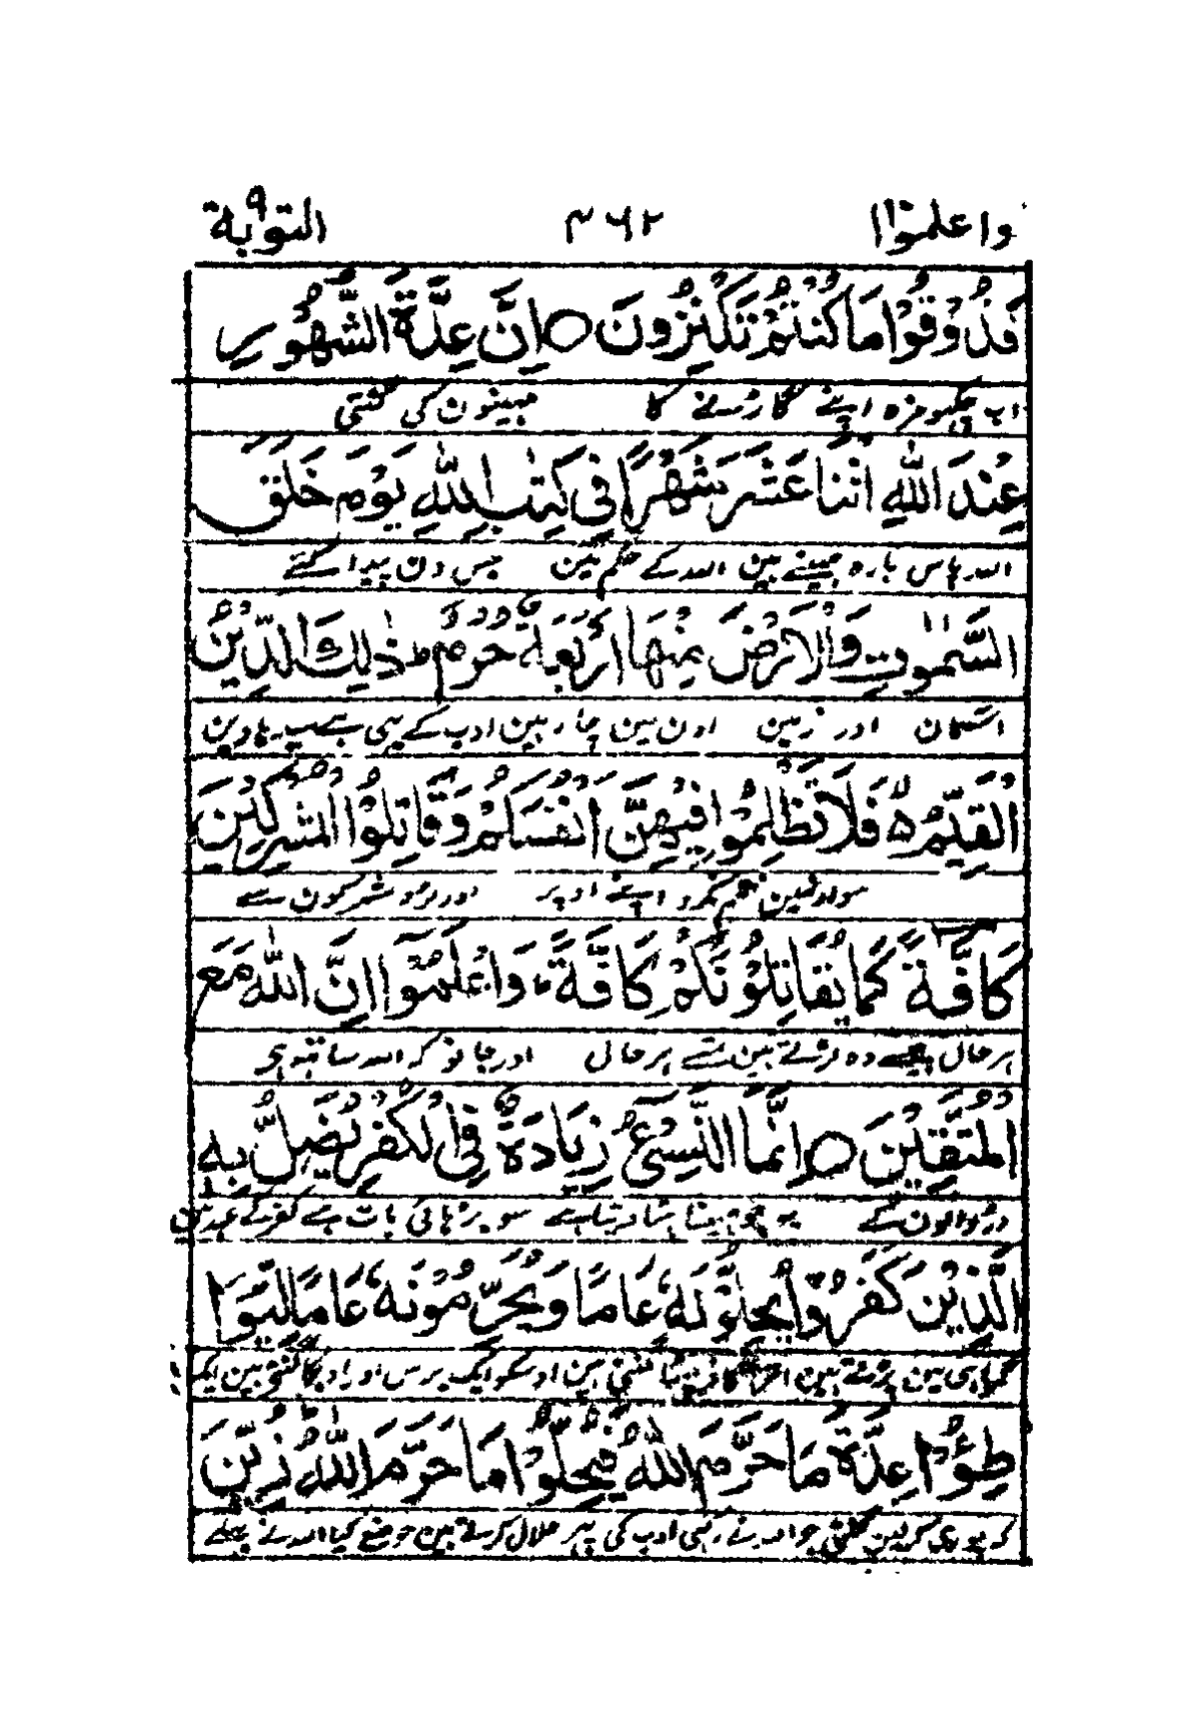 واعلموا ۱۰ ۳۶۲ التوبة ۹
فَذُوْقُوْا مَا كُنْتُمْ تَكْنِزُوْنَ ○ اِنَّ عِدَّةَ الشُّهُوْرِ
اب چکہو مزہ اپنے گاڑنے کا مہینون کی گنتی
عِنْدَ اللّٰهِ اثْنَا عَشَرَ شَهْرًا فِيْ كِتٰبِ اللّٰهِ يَوْمَ خَلَقَ
اللہ پاس بارہ مہینے ہین اللہ کے حکم مین جس دن پیدا کئے
السَّمٰوٰتِ وَالْاَرْضَ مِنْهَا اَرْبَعَةٌ حُرُمٌ ؕ ذٰلِكَ الدِّيْنُ
آسمان اور زمین اون مین چار ہین ادب کے یہی ہے سیدہا دین
الْقَيِّمُ ۙ فَلَا تَظْلِمُوْا فِيْهِنَّ اَنْفُسَكُمْ وَقَاتِلُوا الْمُشْرِكِيْنَ
سو اونمین ظلم نکرو اپنے اوپر اور لڑو مشرکون سے
كَآفَّةً كَمَا يُقَاتِلُوْنَكُمْ كَآفَّةً ؕ وَاعْلَمُوْٓا اَنَّ اللّٰهَ مَعَ
ہر حال جیسے وہ لڑتے ہین تمسے ہر حال اور جانو کہ اللہ ساتھ ہی
الْمُتَّقِيْنَ ○ اِنَّمَا النَّسِيْٓءُ زِيَادَةٌ فِي الْكُفْرِ يُضَلُّ بِهِ
ڈر والون کے یہ جو مہینا ہٹا دینا ہے سو بڑہائی بات ہے کفر کے عہد مین
الَّذِيْنَ كَفَرُوْا يُحِلُّوْنَهٗ عَامًا وَّيُحَرِّمُوْنَهٗ عَامًا لِّيُوَا
گمراہی مین پڑتے ہین اس سے کافر گنتے ہین اوسکو ایک برس اور ادب کا گنتے ہین ایک
طِـُٔوْا عِدَّةَ مَا حَرَّمَ اللّٰهُ فَيُحِلُّوْا مَا حَرَّمَ اللّٰهُ زُيِّنَ
کہ پوری کر لین گنتی جو اللہ نے رکہی ادب کی پہر حلال کرتے ہین جو منع کیا اللہ نے بہلے